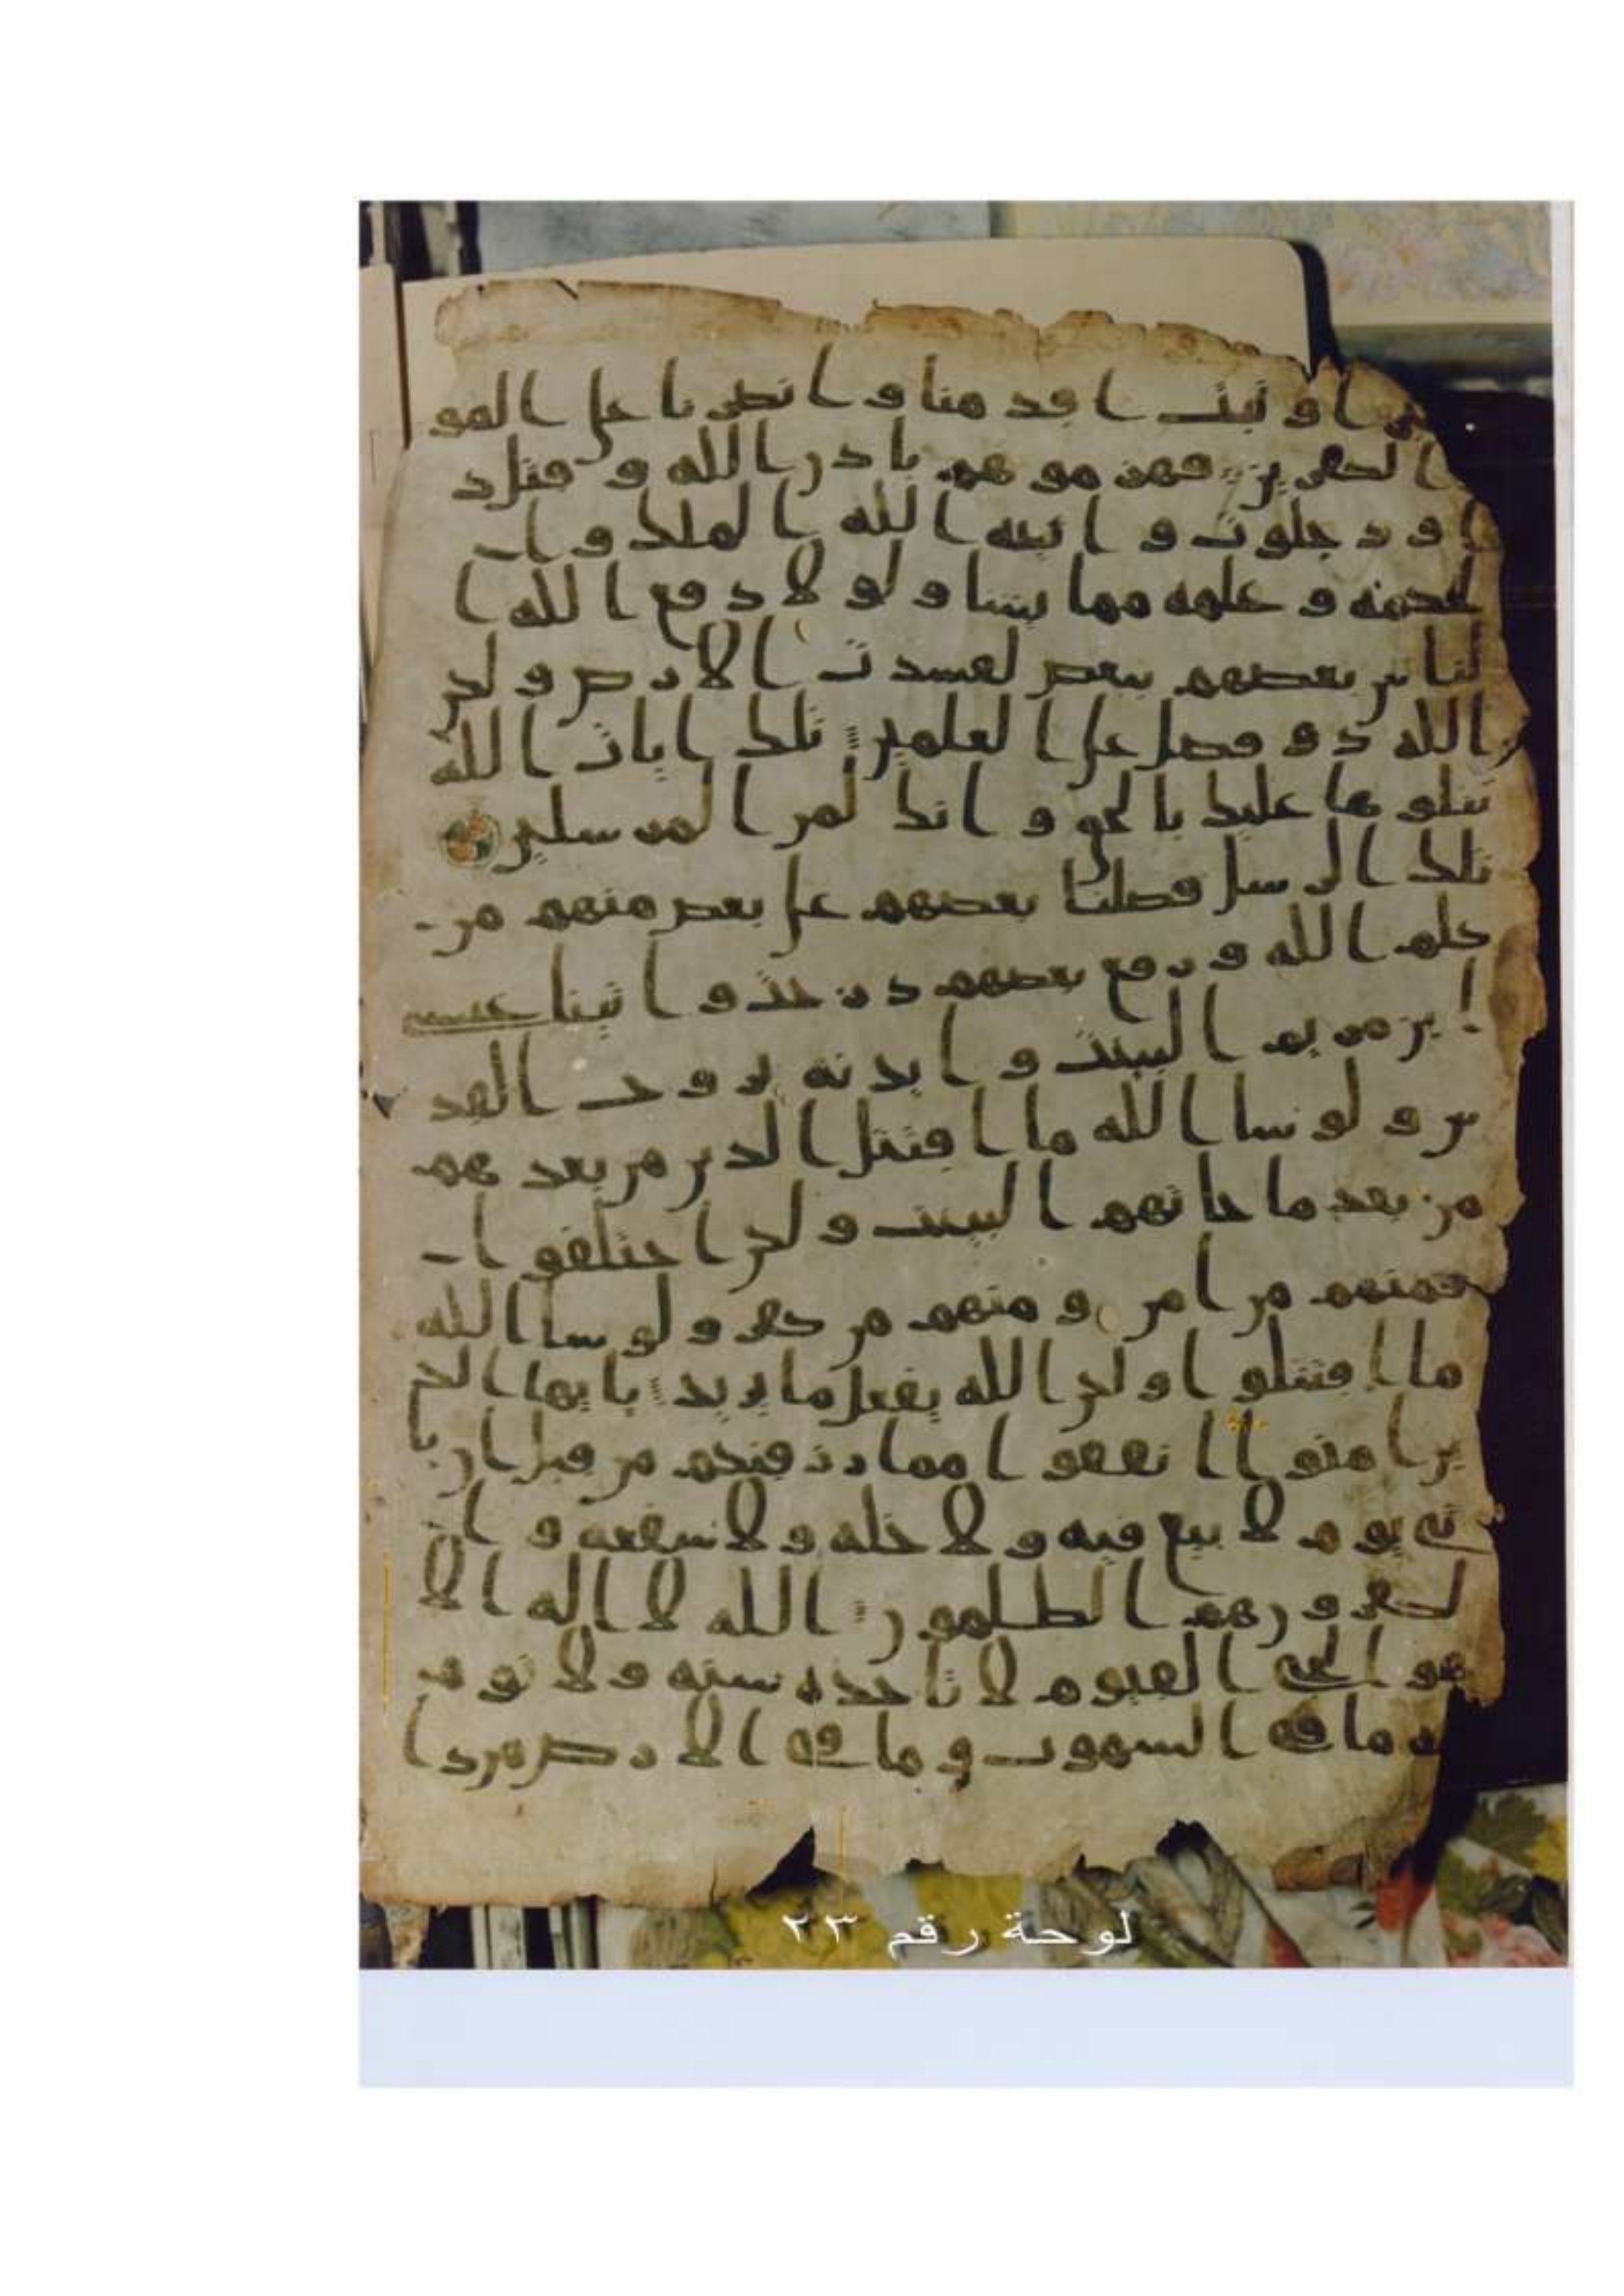 ـرا و ثبت اقدمنا و انصرنا على القو
م الكفرين فهزموهم باذن الله و قتل د
اود جلوت و اتيه الله الملك و ا
لحكمة و علمه مما يشا و لولا دفع الله ا
لناس بعضهم ببعض لفسدت الارض و لكن
الله ذو فضل على العلمين تلك ايات الله
نتلوها عليك بالحق و انك لمن المرسلين
تلك الرسل فضلنا بعضهم على بعض منهم من
كلم الله و رفع بعضهم درجت و اتينا عيسى
ابن مريم البينت و ايدنه بروح القد
س و لو شا الله ما اقتتل الذين من بعدهم
من بعد ما جاتهم البينت و لكن اختلفوا
فمنهم من امن و منهم من كفر و لو شا الله
ما اقتتلوا و لكن الله يفعل ما يريد يايها الذ
ين امنوا انفقوا مما رزقنكم من قبل ان يا
تى يوم لا بيع فيه و لا خلة و لا شفعة و ا
لكفرون هم الظلمون الله لا اله الا
هو الحى القيوم لا تاخذه سنة و لا نوم
له ما فى السموت و ما فى الارض من ذا
لوحة رقم ٢٣